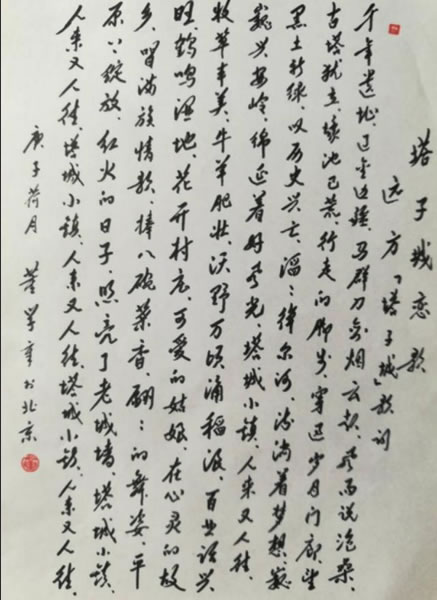 塔子城恋歌
远方「塔子城」歌词
千年遗址、辽金边疆、马群刀剑烟云起、风雨说沧桑、
古塔犹立、城池已荒、行走的脚步、穿过岁月门廊、望
黑土新绿、叹历史兴亡、滔滔绰尔河、流淌着梦想、巍
巍兴安岭、绵延着好风光、塔城小镇、人来又人往、
牧草丰美、牛羊肥壮、沃野万顷涌稻浪、百业兴
旺、鹤鸣湿地、花开村庄、可爱的姑娘、在心灵的故
乡、满族情歌、捧八碗菜香、翩翩的舞姿、平
原上绽放、红火的日子、照亮了老城墙、塔城小镇、
人来又人往、塔城小镇、人来又人往、塔城小镇、人来又人往、
庚子荷月 董学书北京